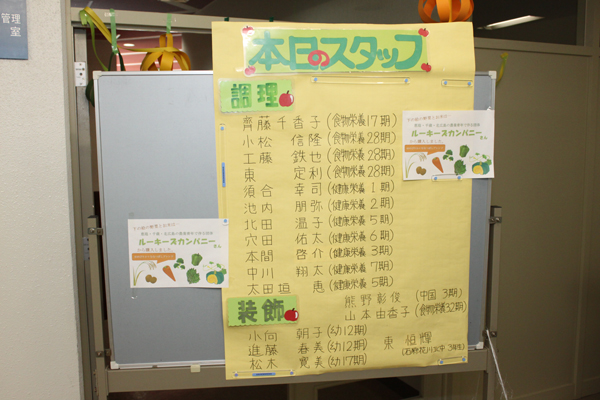 管理
室
本日のスタッフ
調理
齊藤千香子(食物栄養17期)
小松 信隆(食物栄養28期)
工藤 鉄也(食物栄養28期)
東 定利(食物栄養28期)
須合 幸司(健康栄養1期)
池内 朋弥(健康栄養2期)
北田 温子(健康栄養5期)
穴田 佑太(健康栄養6期)
本間 啓介(健康栄養3期)
中川 翔太(健康栄養7期)
太田垣 恵(健康栄養5期)
熊野彰俊(中国3期)
山本由香子(食物栄養32期)
装飾
小向 朝子(幼12期)
進藤 春美(幼12期)
松木 寛美(幼17期)
東 恒輝
ルーキーズカンパニー
さん
から購入しました。
ルーキーズカンパニー
さん
から購入しました。